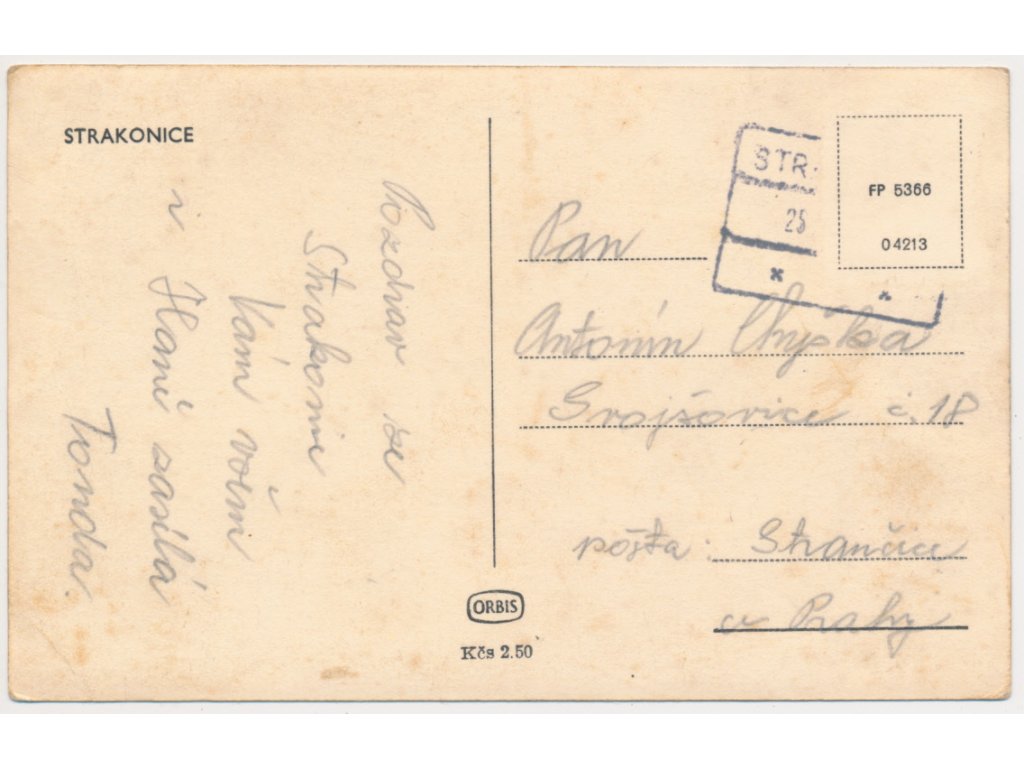 STRAKONICE
Pozdrav ze
Strakonic
Vám všem
v Haně zasílá
Tonda.
STR
25
FP 5366
04213
Pan
Antonín Chyška
Svojšovice č. 18
pošta: Strančice
u Prahy
ORBIS
Kčs 2.50